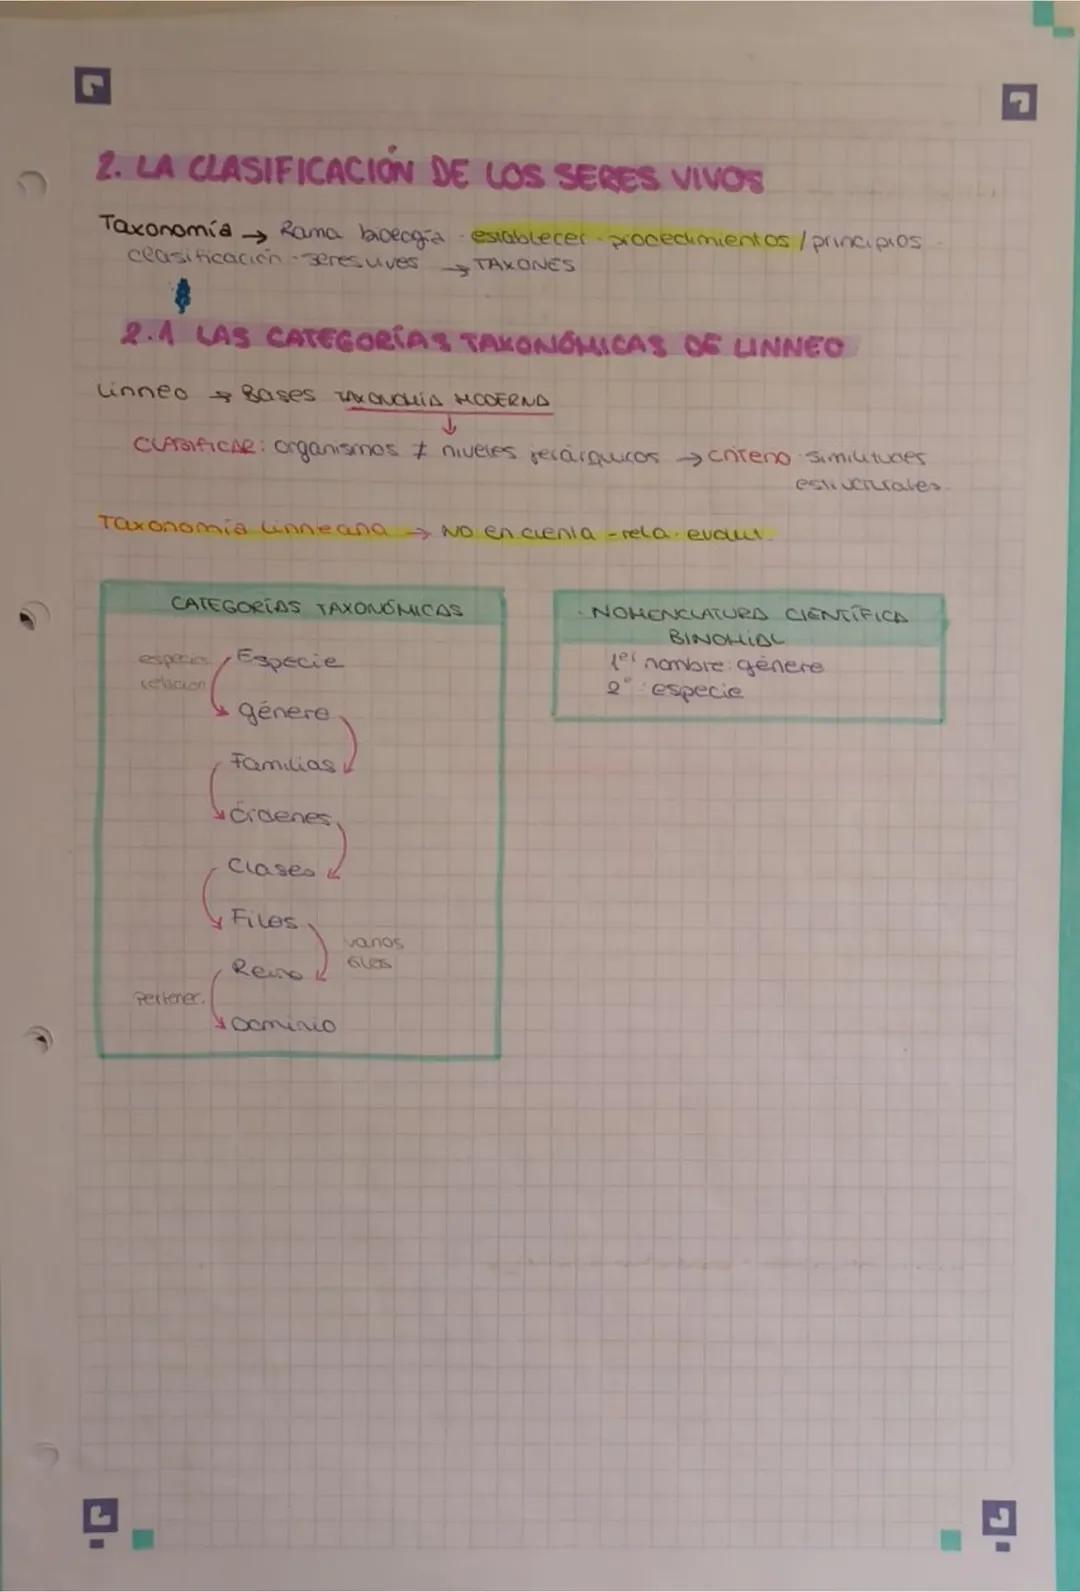 2. LA CLASIFICACIÓN DE LOS SERES VIVOS
Taxonomía → Rama biología - establecer - procedimientos / principios -
clasificación - seres vivos → TAXONES
2.1 LAS CATEGORÍAS TAXONÓMICAS DE LINNEO
Linneo → Bases TAXONOMÍA MODERNA
↓
CLASIFICAR: organismos ≠ niveles jerárquicos → criterio similitudes
estructurales.
Taxonomía Linneana → NO en cuenta - rela. evolut.
CATEGORÍAS TAXONÓMICAS
especies Especie
relacion
género
Familias
Órdenes
Clases
Filos
varios
Reino filos
Pertenec.
Dominio
- NOMENCLATURA CIENTÍFICA
BINOMIAL
1er nombre: género
2º : especie